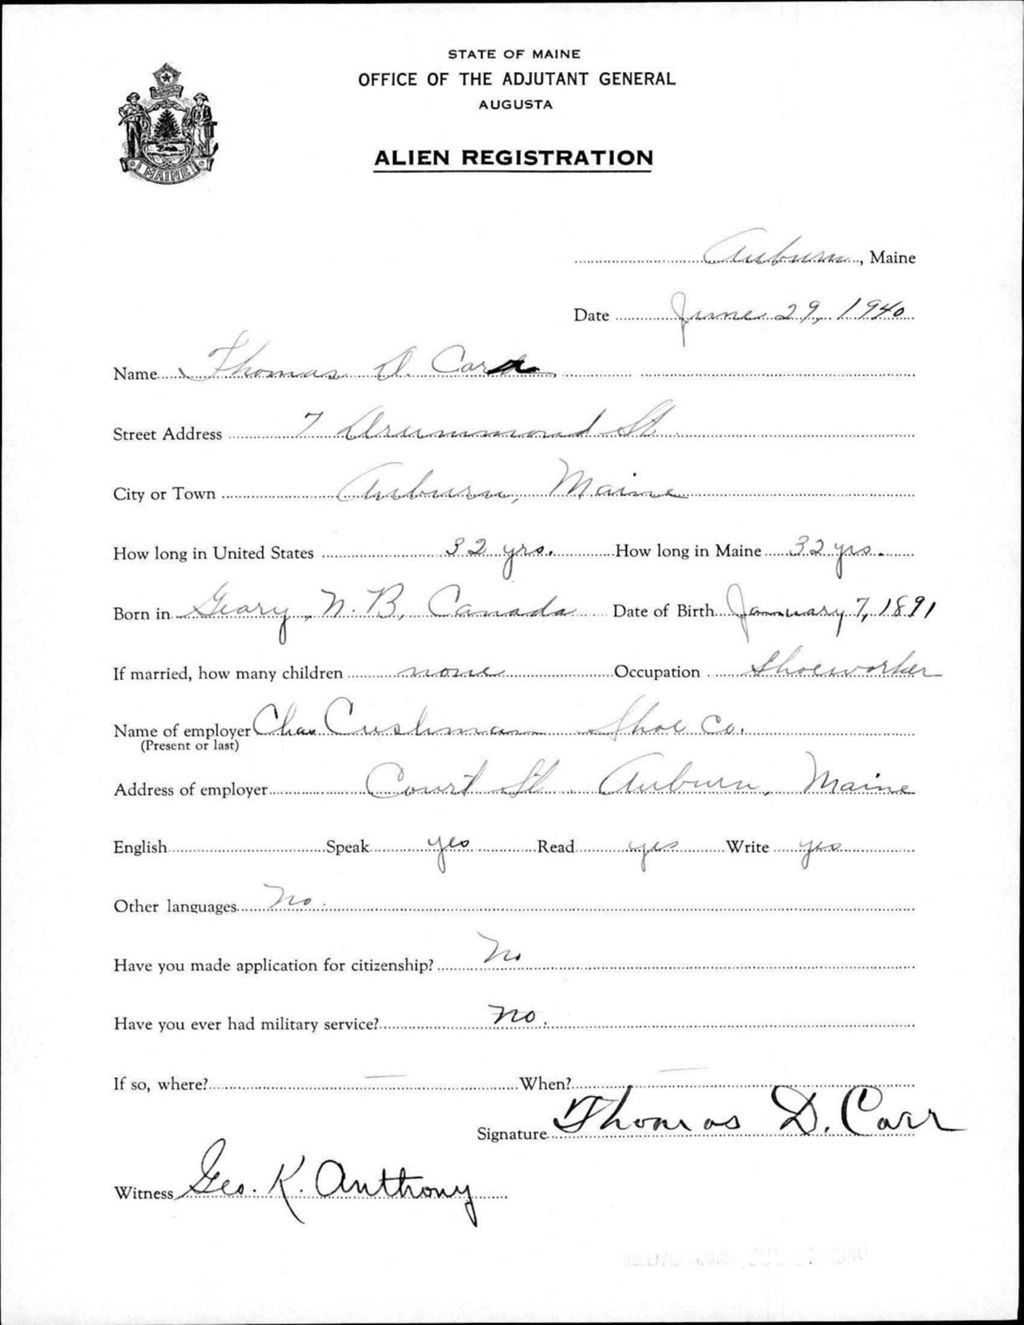 STATE OF MAINE
OFFICE OF THE ADJUTANT GENERAL
AUGUSTA
MAINE
ALIEN REGISTRATION
Auburn, Maine
Date June 29, 1940
Name Thomas D. Carr
Street Address 7 Drummond St.
City or Town Auburn, Maine
How long in United States 32 yrs. How long in Maine 32 yrs.
Born in Geary, N. B, Canada Date of Birth January 7, 1891
If married, how many children none Occupation Shoeworker
Name of employer Chas Cushman Shoe Co.
(Present or last)
Address of employer Court St. Auburn, Maine
English Speak yes Read yes Write yes
Other languages No.
Have you made application for citizenship? No
Have you ever had military service? no.
If so, where? — When? —
Signature Thomas D. Carr
Witness Geo. K. Anthony